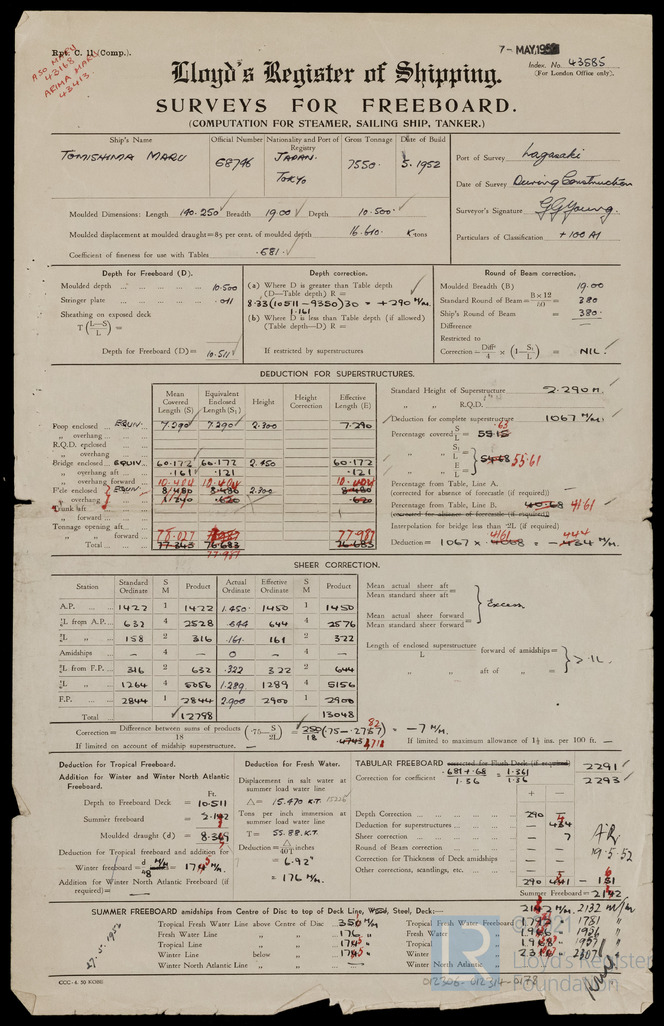 Rpt. C. 11 (Comp.).
ASO MARU
43168
ARIMA MARU
43413
7 - MAY 1952
Index. No. 43585
(For London Office only).
Lloyd's Register of Shipping.
SURVEYS FOR FREEBOARD.
(COMPUTATION FOR STEAMER, SAILING SHIP, TANKER.)
Ship's Name Official Number Nationality and Port of Registry Gross Tonnage Date of Build
TOMISHIMA MARU 68796 JAPAN. TOKYO 7550. 5. 1952
Port of Survey Nagasaki
Date of Survey During Construction
Surveyor's Signature G G Young.
Particulars of Classification +100 A1
Moulded Dimensions: Length 140.250 Breadth 19.00 Depth 10.500
Moulded displacement at moulded draught = 85 per cent. of moulded depth 16.610 K tons
Coefficient of fineness for use with Tables .681
Depth for Freeboard (D).
Moulded depth 10.500
Stringer plate .011
Sheathing on exposed deck
T (L-S / L) =
Depth for Freeboard (D) = 10.511
Depth correction.
(a) Where D is greater than Table depth
(D—Table depth) R =
8.33 (10511 - 9350) 30 = +290 M/m.
1.161
(b) Where D is less than Table depth (if allowed)
(Table depth—D) R =
If restricted by superstructures
Round of Beam correction.
Moulded Breadth (B) 19.00
Standard Round of Beam = B x 12 / 50 = 380
Ship's Round of Beam = 380.
Difference —
Restricted to
Correction = Diff / 4 x (1 - S1 / L) = NIL.
DEDUCTION FOR SUPERSTRUCTURES.
Mean Covered Length (S) Equivalent Enclosed Length (S1) Height Height Correction Effective Length (E)
Poop enclosed EQUIV. 7.290 7.290 2.300 7.290
„ overhang
R.Q.D. enclosed
„ overhang
Bridge enclosed EQUIV 60.172 60.172 2.450 60.172
„ overhang aft .161 .121 .121
„ overhang forward 10.404 10.404 10.404
F'cle enclosed EQUIV. 8.480 8.480 2.300 8.480
„ overhang 1.240 .620 .620
Trunk aft
„ forward
Tonnage opening aft
„ „ forward 78.027 77.987 77.987
Total 77.343 76.683 76.683
77.987
Standard Height of Superstructure 2.290 M.
„ „ R.Q.D.
Deduction for complete superstructure 1067 M/m
Percentage covered S / L = 55.15 .63
„ „ S1 / L =
„ „ E / L = 54.68 55.61
Percentage from Table, Line A.
(corrected for absence of forecastle (if required))
Percentage from Table, Line B. 40.68 41.61
(corrected for absence of forecastle (if required))
Interpolation for bridge less than ·2L (if required)
Deduction = 1067 x 40.68 41.61 = - 434 444 M/m.
SHEER CORRECTION.
Station Standard Ordinate S M Product Actual Ordinate Effective Ordinate S M Product
A.P. 1422 1 1422 1.450 1450 1 1450
¼L from A.P. 632 4 2528 .644 644 4 2576
¼L „ 158 2 316 .161 161 2 322
Amidships — 4 — 0 — 4 —
¼L from F.P. 316 2 632 .322 322 2 644
¼L „ 1264 4 5056 1.289 1289 4 5156
F.P. 2844 1 2844 2.900 2900 1 2900
Total 12798 13048
Mean actual sheer aft
Mean standard sheer aft =
Mean actual sheer forward
Mean standard sheer forward =
Excess
Length of enclosed superstructure / L forward of amidships =
„ „ aft of „ =
> .1L.
Correction = Difference between sums of products / 18 (·75 - S / 2L) = 250 / 18 (.75 - .2757) = - 7 M/m.
82
.4743 4718
If limited on account of midship superstructure. —
If limited to maximum allowance of 1½ ins. per 100 ft. —
Deduction for Tropical Freeboard.
Addition for Winter and Winter North Atlantic Freeboard.
Ft.
Depth to Freeboard Deck = 10.511
Summer freeboard = 2.142
Moulded draught (d) = 8.369
Deduction for Tropical freeboard and addition for
Winter freeboard = d / 48 M/m = 174 M/m.
Addition for Winter North Atlantic Freeboard (if required) = —
Deduction for Fresh Water.
Displacement in salt water at summer load water line
Δ = 15.470 K.T.
Tons per inch immersion at summer load water line
T = 55.88 K.T.
Deduction = Δ / 40T inches
= 6.92"
= 176 M/m.
TABULAR FREEBOARD corrected for Flush Deck (if required) 2291
Correction for coefficient .681 + .68 / 1.36 = 1.361 / 1.36 2293
+ —
Depth Correction 290 —
Deduction for superstructures — 434
Sheer correction — 7
Round of Beam correction — —
Correction for Thickness of Deck amidships — —
Other corrections, scantlings, etc. — —
290 441 - 151
Summer Freeboard = 2142
19.5.52
SUMMER FREEBOARD amidships from Centre of Disc to top of Deck Line, Wood, Steel, Deck:— 2142 M/m. 2132 M/m
Tropical Fresh Water Line above Centre of Disc 350 M/m
Fresh Water Line „ „ 176 „
Tropical Line „ „ 174 „
Winter Line below „ 174 „
Winter North Atlantic Line „ „ —
Tropical Fresh Water Freeboard 1781 „
Fresh Water „ 1966 1956 „
Tropical „ 1968 1957 „
Winter „ 2307 „
Winter North Atlantic „ —
27.5.1952
CCC - 4. 50 KOBE
© 2021
Lloyd's Register
Foundation
012306-012314-0178